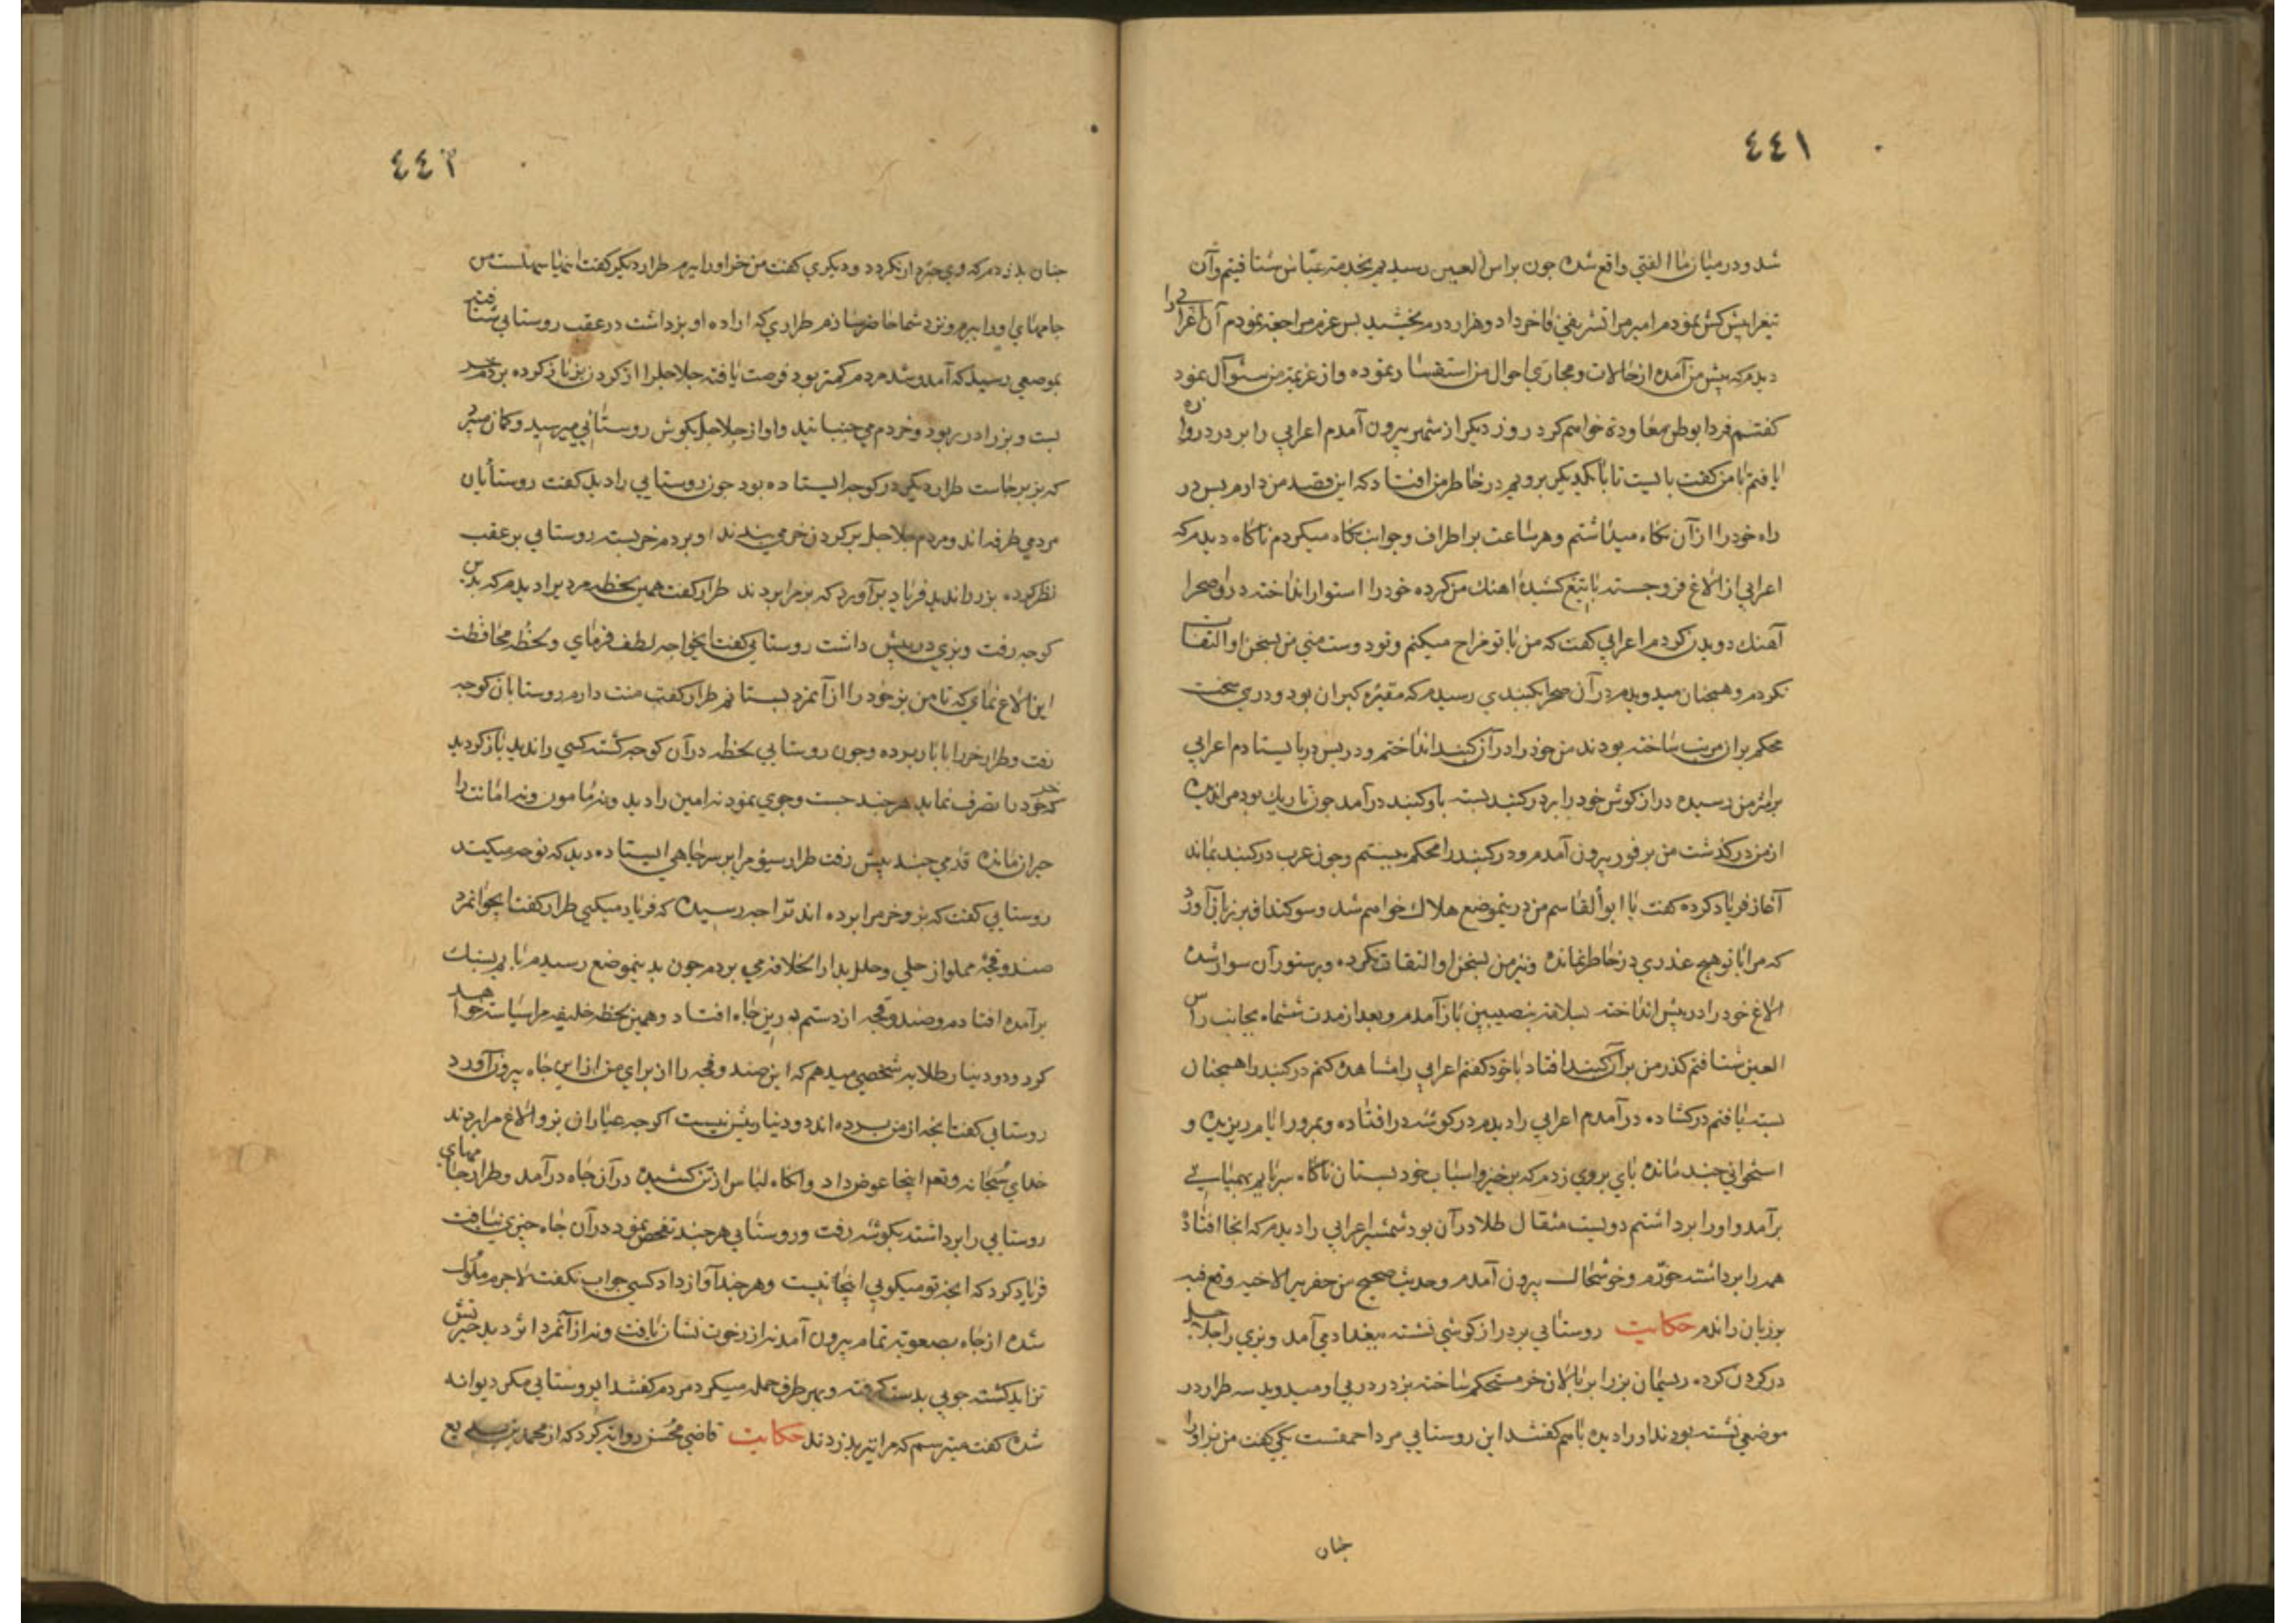 ٤٤١
شد و در میان ما الفتی واقع شده چون براس العین رسیدیم بخدمة عباس شتافتیم و آن
تیغرا پیش کش نمودم امیر مرا تشریفی فاخر داد و هزار درم بخشید پس عزم مراجعة نمودم آن اعرابی را
دیدم که پیش من آمده از حالات و مجاری احوال من استفسار نموده و از عزیمة من سئوال نمود
کفتم فردا بوطن معاودة خواهم کرد روز دیکر از شهر بیرون آمدم اعرابی را بر در دروازه
یافتم با من کفت بایست تا با یکدیکر برویم در خاطر من افتاد که این قصد من دارم پس در
راه خود را از آن نکاه میداشتم و هر ساعت بر اطراف و جوانب نکاه میکردم ناکاه دیدم که
اعرابی از الاغ فرو جسته با تیغ کشیده آهنك من کرده خود را استوار انداخته در او صحرا
آهنك دویدن کردم اعرابی کفت که من با تو مزاح میکنم و تو دوست منی من بسخن او التفات
نکردم و همچنان میدویدم در آن صحرا بکنبدی رسیدم که مقبره کبران بود و دری سخت
محکم بران مرتب ساخته بودند من خود را در آن کنبد انداختم و در پس در بایستادم اعرابی
بر اثر من رسیده دراز کوش خود را بر در کنبد بسته باو کنبد در آمد چون تاریك بود مرا ندیده
از من در کذشت من بر فور بیرون آمدم و در کنبد را محکم ببستم و چون عرب در کنبد بماند
آغاز فریاد کرده کفت یا ابو القاسم من درین موضع هلاك خواهم شد و سوکندا فبر زبان آورد
که مرا با تو هیچ عذری در خاطر نمانده و نیز من بسخن او التفات نکرده و بر ستور آن سوار شده
الاغ خود را در پیش انداخته بسلامة بنصیبین باز آمدم و بعد از مدت شش ماه بجانب راس
العین شتافتم کذر من بر آن کنبد افتاد با خود کفتم اعرابی را مشاهده کنم در کنبد را همچنان
بسته یافتم در کشاده در آمدم اعرابی را دیدم در کوشه در افتاده و بمرور ایام ریزیده و
استخوانی چند مانده پای بر وی زدم که برخیز و اسباب خود بستان ناکاه سر پایم بهمیانی
برآمد و او را برداشتم دویست مثقال طلا در آن بود شمشیر اعرابی را دیدم که انجا افتاده
همه را برداشته خرّم و خوشحال بیرون آمدم و حدیث صحیح من حفر بیرا لاخیه وقع فیه
بر زبان راندم حکایت روستایی بر دراز کوشی نشسته ببغداد می آمد و بزی را جلاجل
در کردن کرده ریسمان بز را بر پالان خر مستحکم ساخته بز در در پی او میدوید سه طرار در
موضعی نشسته بودند او را دیده با هم کفتند این روستایی مرد احمقست یکی کفت من بز او را
چنان
٤٤٢
چنان بدزدم که وی خبردار نکردد و دیکری کفت من خر او را ببرم طرار دیکر کفت اینها سهلست من
جامهای او را ببرم و نزد شما حاضر سازم طراری که اراده او بز داشت در عقب روستایی شتافته
بموضعی رسید که آمد و شد مردم کمتر بود فرصت یافته جلاجل را از کردن بز باز کرده بر دم خر
بست و بز را در ربود و خر دم می جنبانید و آواز جلاجل بکوش روستایی میرسید و کمان میبرد
که بز بر جاست طرار دیکر در کوچه ایستاده بود چون روستایی را دید کفت روستایان
مردمی طرفه اند و مردم جلاجل بر کردن خر می بندند او بر دم خر بسته روستایی بر عقب
نظر کرده بز را ندید فریاد بر آورد که بز مرا بردند طرار کفت همین لحظه مردیرا دیدم که بدین
کوچه رفت و بزی در پیش داشت روستایی کفت ایخواجه لطف فرمای و لحظه محافظت
این الاغ نمای که تا من بز خود را از آنمرد بستانم طرار کفت منت دارم روستایان کوچه
رفت و طرار خر را با بار برده و چون روستایی لحظه در آن کوچه کشته کسی را ندید باز کردید
که خر خود را تصرف نماید هر چند جست و جوی نمود نه امین را دید و نه مامون و نه امانت را
حیران مانده قدمی چند پیش رفت طرار سیوم را بر سر چاهی ایستاده دید که نوحه میکند
روستایی کفت که بز و خر مرا برده اند ترا چه رسیده که فریاد میکنی طرار کفت ایجوانمرد
صندوقچه مملو از حلی و حلل بدار الخلافه می بردم چون بدینموضع رسیدم پایم بسنك
برآمده افتادم و صندوقچه از دستم درین چاه افتاد و همین لحظه خلیفه مرا سیاسة خواهد
کرد و دو دینار طلا به شخصی میدهم که این صندوقچه را از برای من ازین چاه بیرون آورد
روستایی کفت آنچه از من برده اند دو دینار بیش نیست اکر چه عیاران بز و الاغ مرا بردند
خدای سبحانه و تعالی اینجا عوض داد و آنکاه لباس از تن کشیده در آن چاه در آمد و طرار جامهای
روستایی را برداشته بکوشه رفت و روستایی هر چند تفحص نمود در آن چاه چیزی نیافت
فریاد کرد که آنچه تو میکویی اینجا نیست و هر چند آواز داد کسی جواب نکفت لاجرم ملول
شده از چاه بصعوبة تمام بیرون آمد نه از رخوت نشان یافت و نه از آنمرد اثر دید حیرتش
تزاید کشته چوبی بدست کرفته و بهر طرف حمله میکرد مردم کفتند ای روستایی مکر دیوانه
شده کفت میترسم که مرا نیز بدزدند حکایت قاضی محسن روایة کرد که از محمد بن